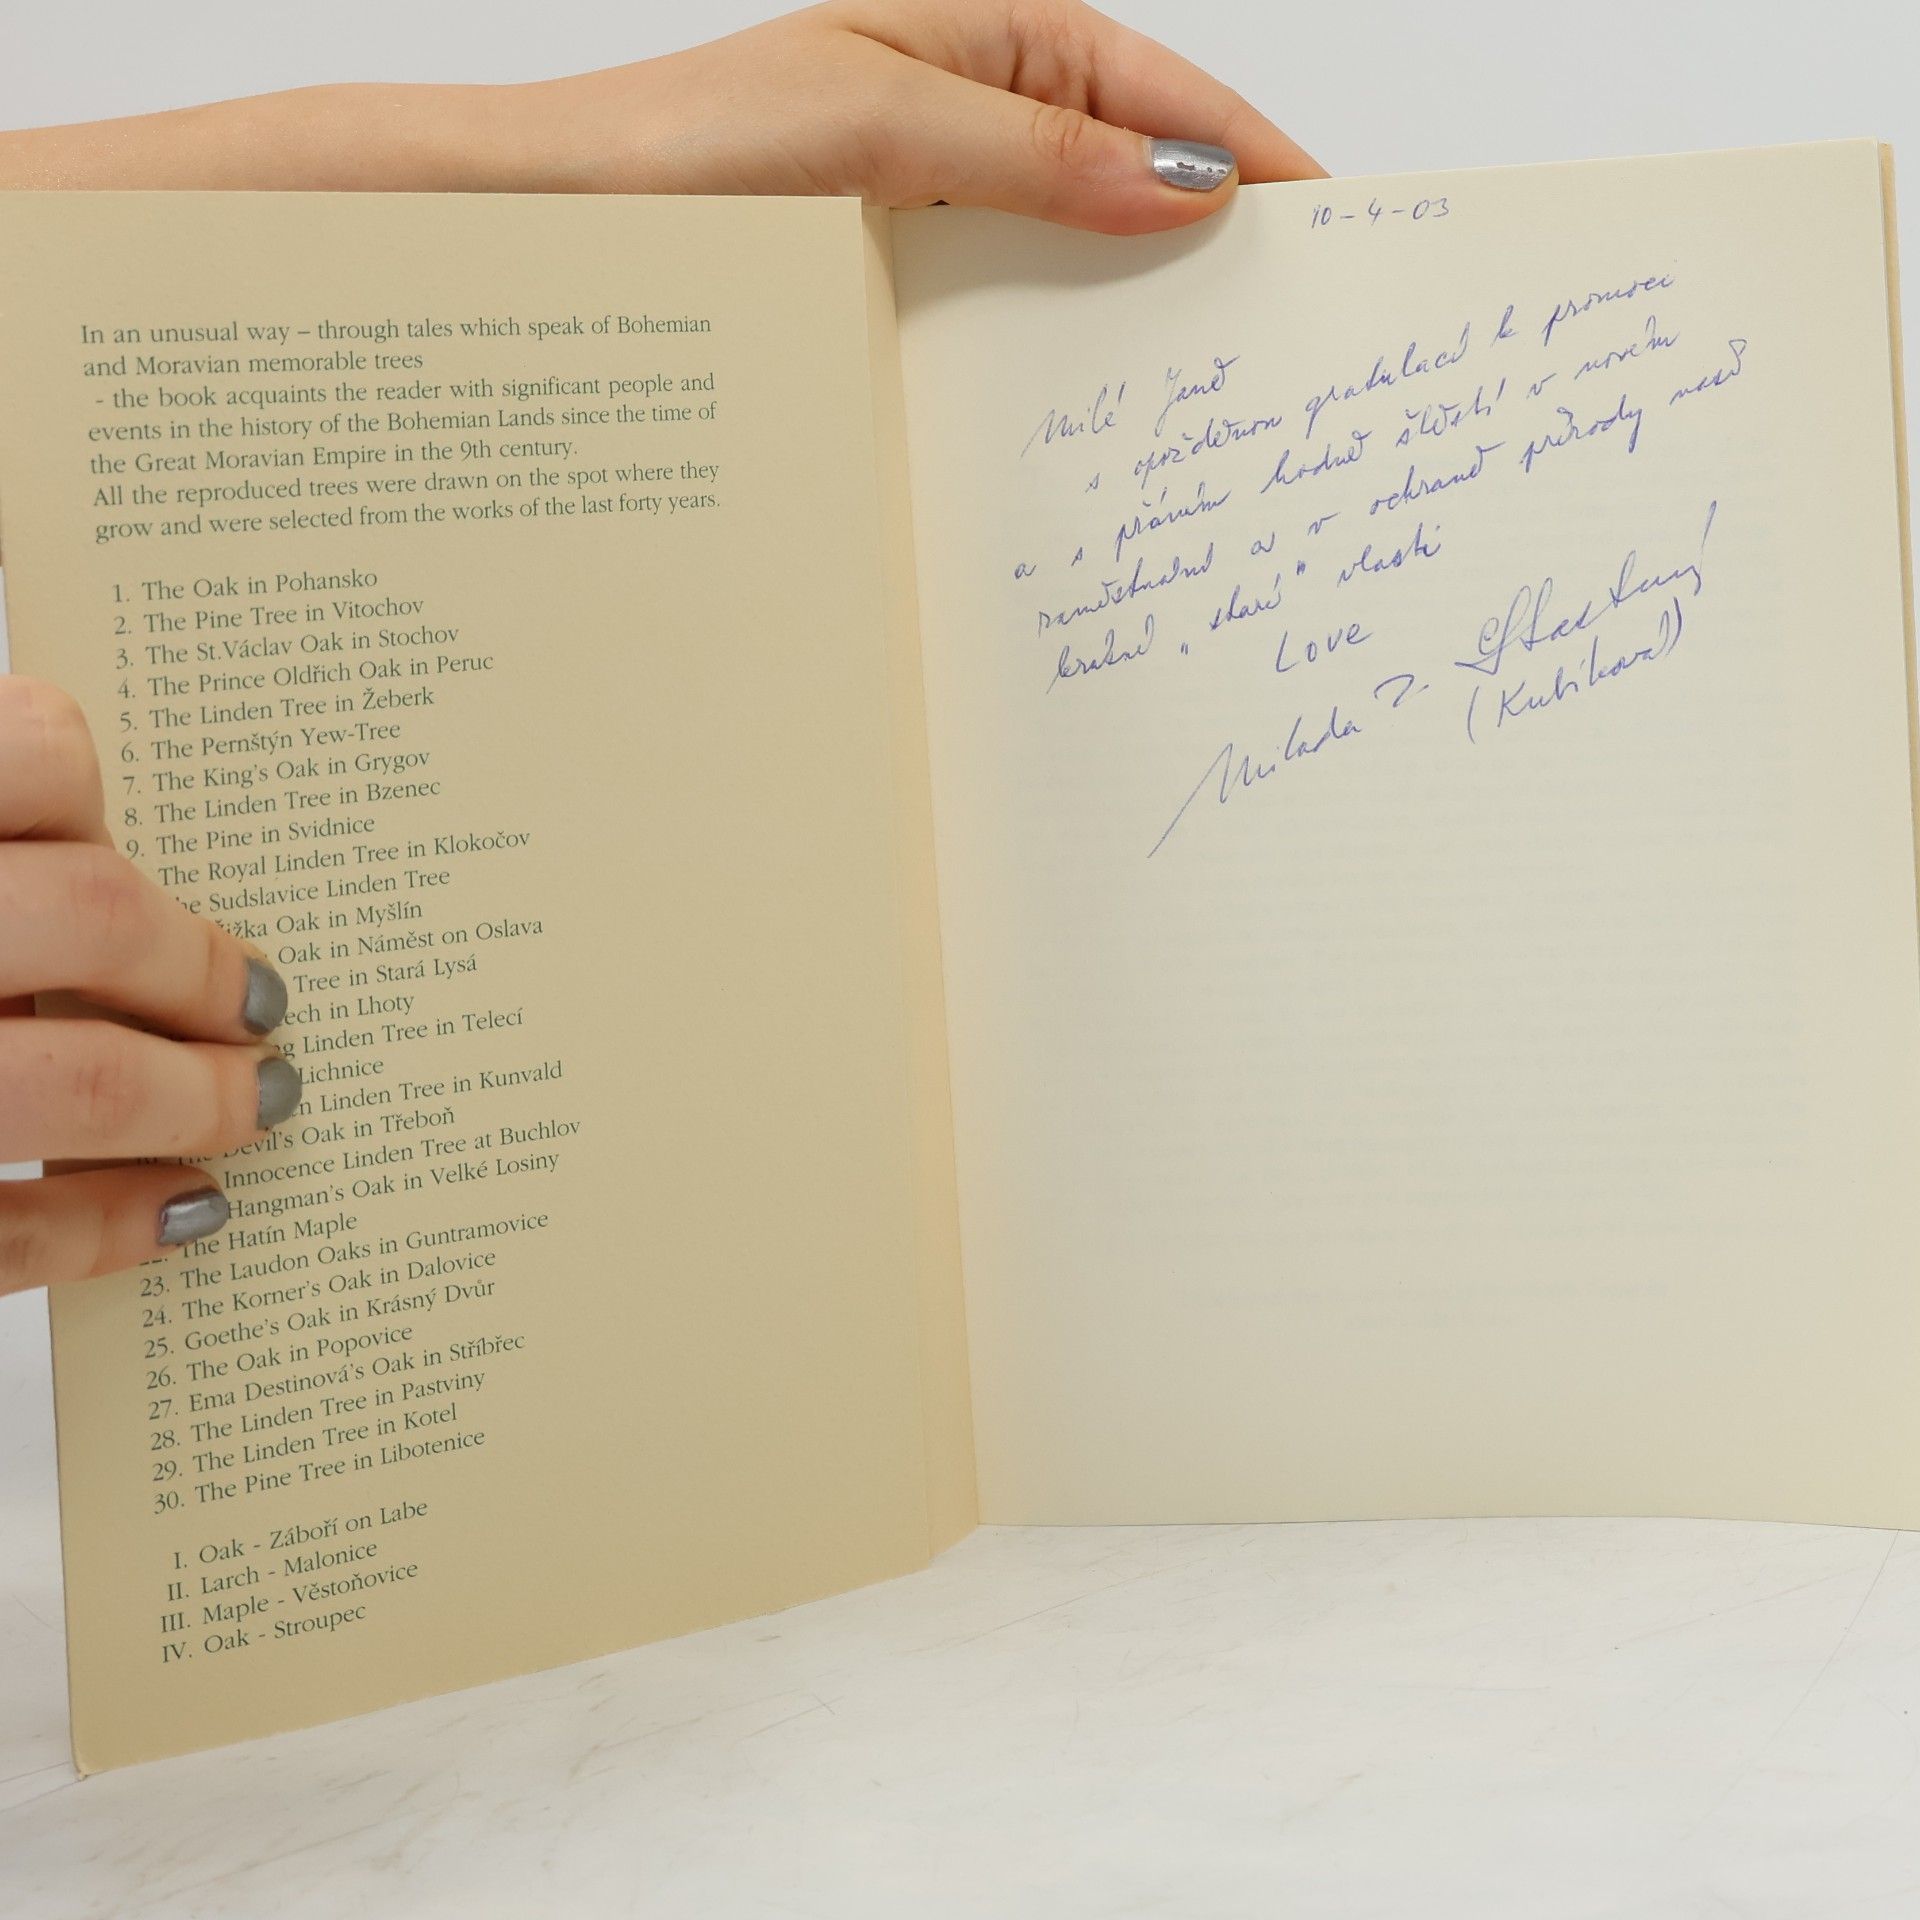 In an unusual way – through tales which speak of Bohemian
and Moravian memorable trees
- the book acquaints the reader with significant people and
events in the history of the Bohemian Lands since the time of
the Great Moravian Empire in the 9th century.
All the reproduced trees were drawn on the spot where they
grow and were selected from the works of the last forty years.
1. The Oak in Pohansko
2. The Pine Tree in Vitochov
3. The St.Václav Oak in Stochov
4. The Prince Oldřich Oak in Peruc
5. The Linden Tree in Žeberk
6. The Pernštýn Yew-Tree
7. The King's Oak in Grygov
8. The Linden Tree in Bzenec
9. The Pine in Svidnice
The Royal Linden Tree in Klokočov
Sudslavice Linden Tree
Oak in Myšlín
Oak in Náměst on Oslava
Tree in Stará Lysá
in Lhoty
Linden Tree in Telecí
Lichnice
Linden Tree in Kunvald
Devil's Oak in Třeboň
Innocence Linden Tree at Buchlov
Hangman's Oak in Velké Losiny
The Hatín Maple
23. The Laudon Oaks in Guntramovice
24. The Korner's Oak in Dalovice
25. Goethe's Oak in Krásný Dvůr
26. The Oak in Popovice
27. Ema Destinová's Oak in Stříbřec
28. The Linden Tree in Pastviny
29. The Linden Tree in Kotel
30. The Pine Tree in Libotenice
I. Oak - Záboří on Labe
II. Larch - Malonice
III. Maple - Věstoňovice
IV. Oak - Stroupec
10-4-03
Milé Janě
s opožděnou gratulací k promoci
a s přáním hodně štěstí v novém
zaměstnání a v ochraně přírody naší
krásné „staré" vlasti
Love
Milada Z. Šťastný
(Kubíková)